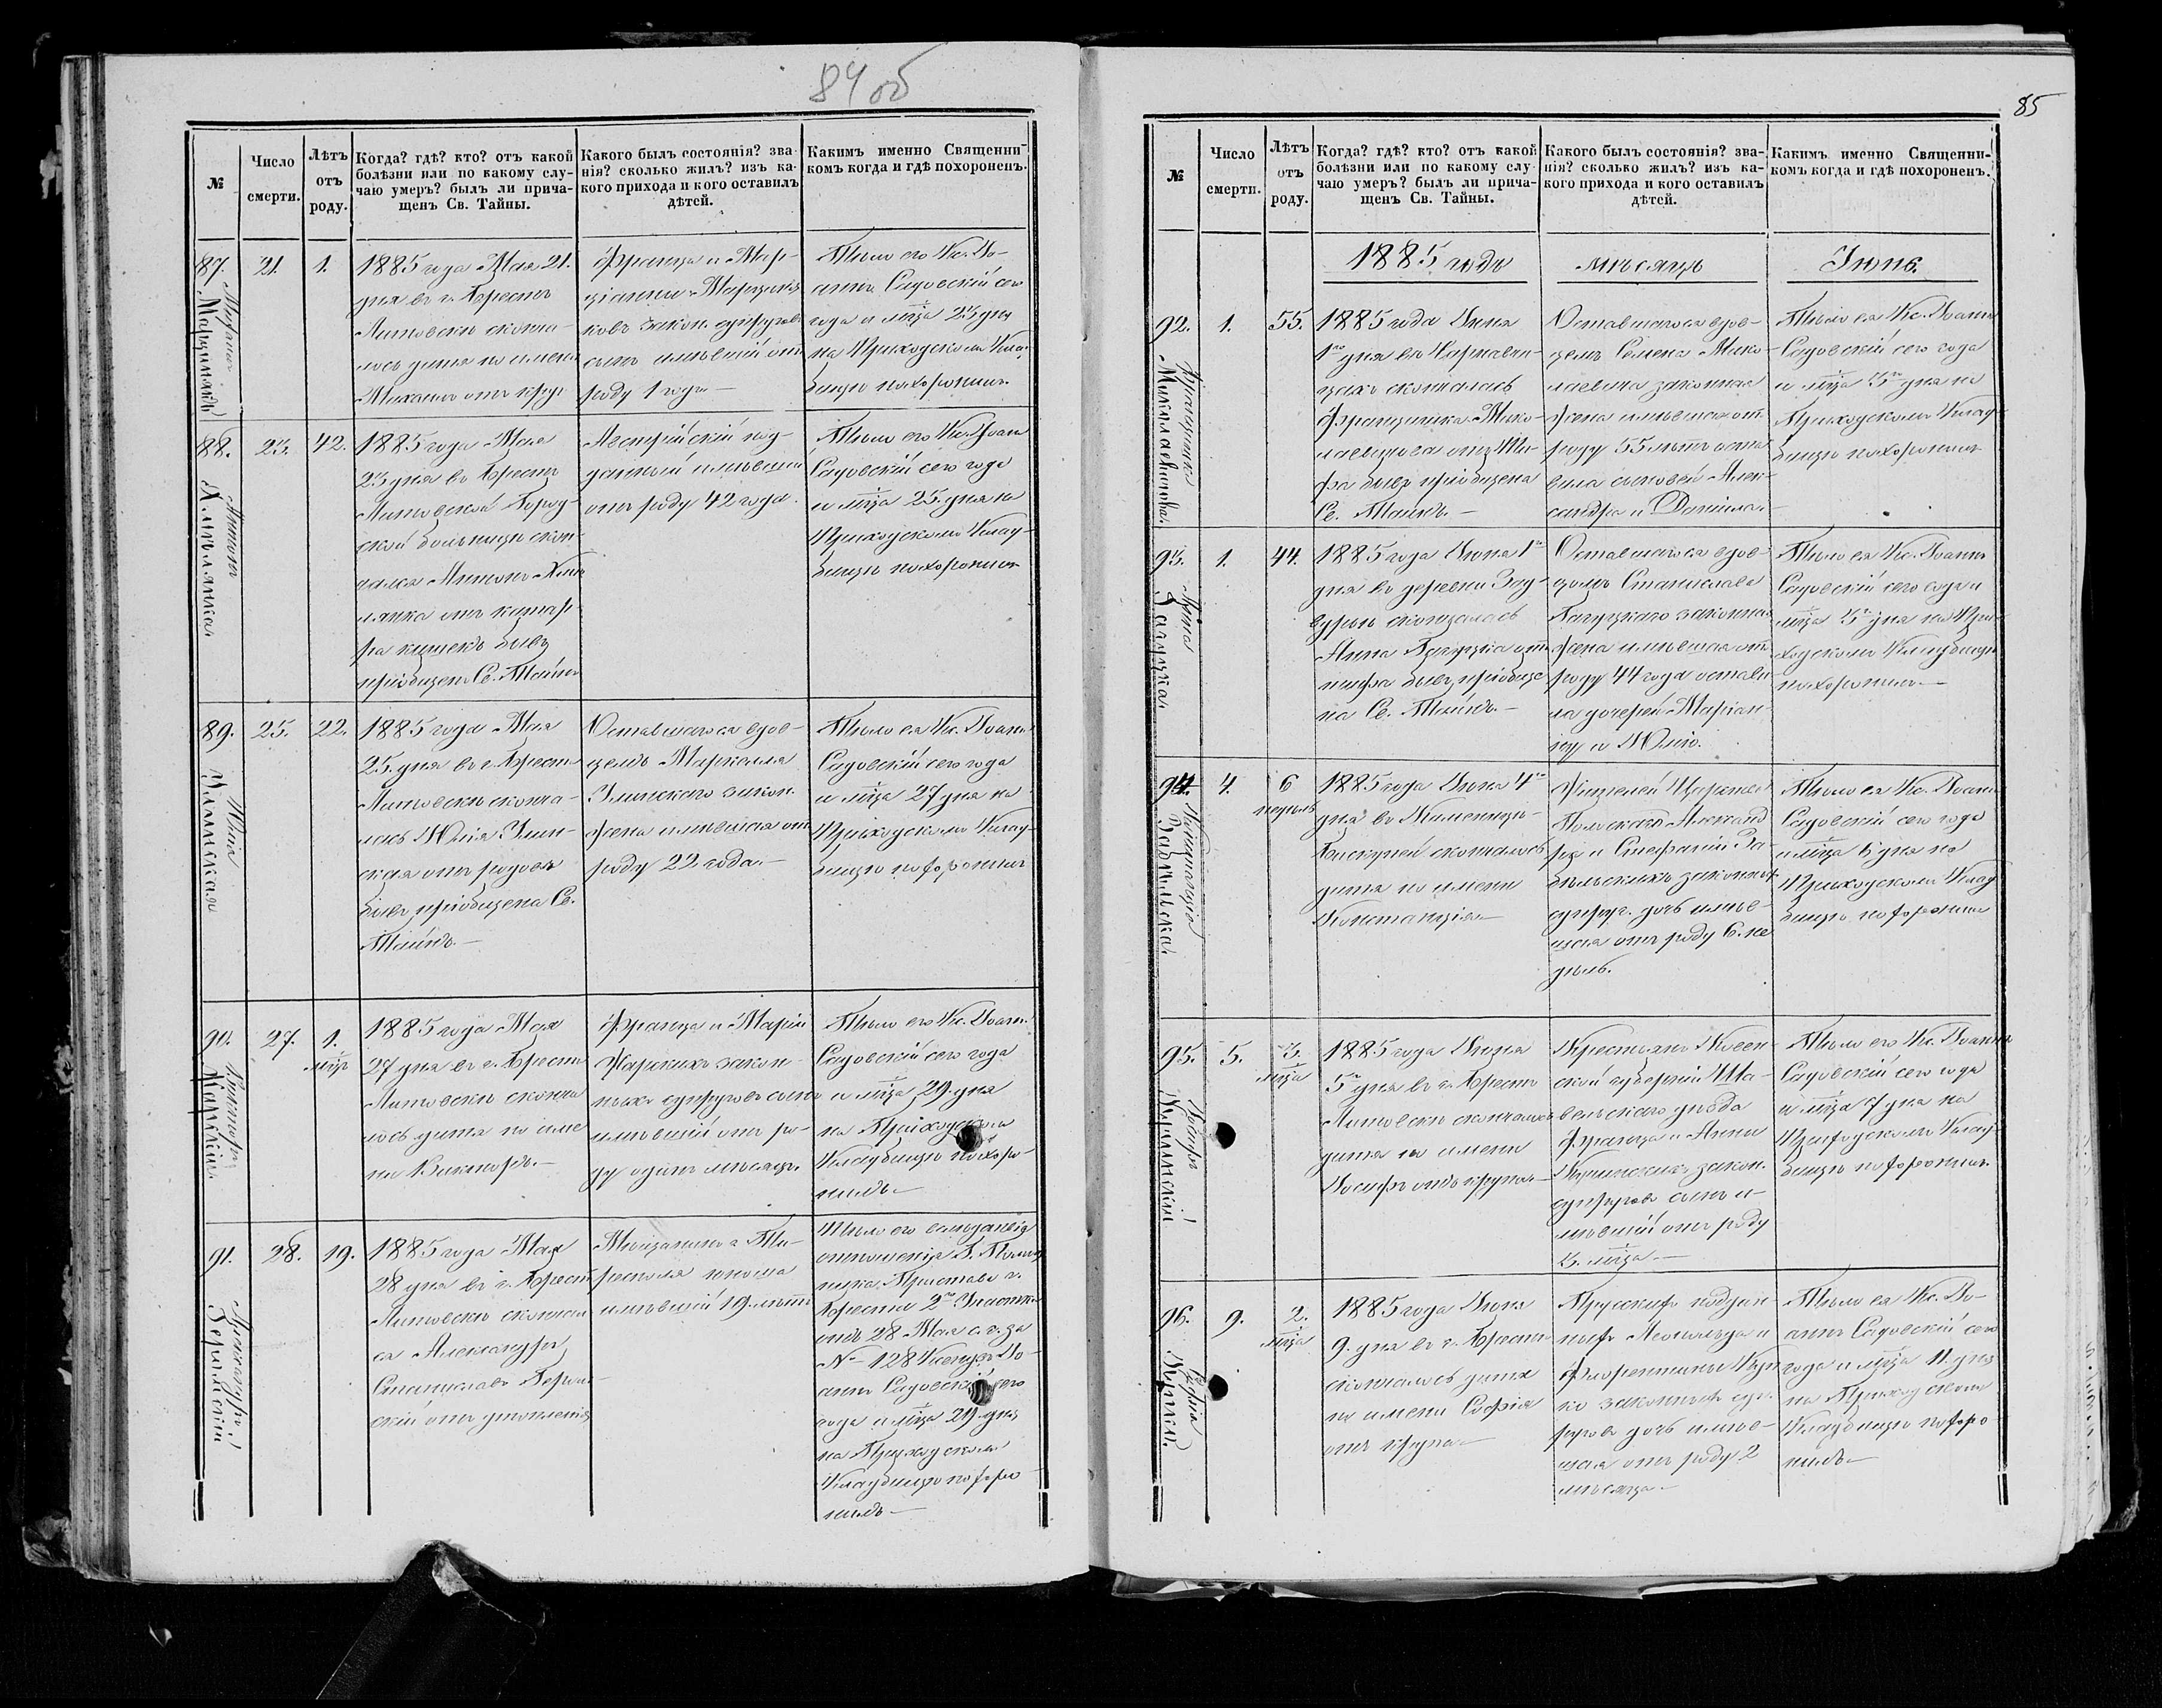 84 об
№
Число смерти.
Лѣтъ отъ роду.
Когда? гдѣ? кто? отъ какой
болѣзни или по какому слу-
чаю умеръ? былъ ли прича-
щенъ Св. Тайны.
Какого былъ состоянія? зва-
нія? сколько жилъ? изъ ка-
кого прихода и кого оставилъ
дѣтей.
Какимъ именно Священни-
комъ когда и гдѣ похороненъ.
87.
Михаилъ
21.
1.
1885 года Мая 21.
дня въ г. Брестъ
Литовскѣ сконча-
лось дитя по имени
Михаилъ отъ круп
Франца и Мар-
законн. супруговъ
сынъ имѣвшій отъ
роду 1 годъ —
Тѣло его Кс. Іо-
аннъ Садовскій сего
года и м-ца 23 дня
на Приходскомъ Клад-
бищѣ похоронилъ.
88.
Антонъ
23.
42.
1885 года Мая
23 дня въ Брестъ
Литовской Город-
ской больницѣ скон-
чался Антонъ
отъ катар-
ра кишекъ бывъ
пріобщенъ Св. Тайнъ
Австрійскій под-
данный имѣвшій
отъ роду 42 года.
Тѣло его Кс. Іоаннъ
Садовскій сего года
и м-ца 25 дня на
Приходскомъ Клад-
бищѣ похоронилъ
89.
Юлія
25.
22.
1885 года Мая
25 дня въ г. Брестъ
Литовскѣ сконча-
лась Юлія Элин-
ская отъ родовъ
бывъ пріобщена Св.
Тайнъ. —
Оставшагося вдов-
цемъ Маркелла
Элинскаго закон.
жена имѣвшая отъ
роду 22 года. —
Тѣло ея Кс. Іоаннъ
Садовскій сего года
и м-ца 27 дня на
Приходскомъ Клад-
бищѣ похоронилъ
90.
Викторъ
27.
1.
м-цъ
1885 года Мая
27 дня въ г. Брестъ
Литовскѣ сконча
лось дитя по име
ни Викторъ. —
Франца и Маріи
закон-
ныхъ супруговъ сынъ
имѣвшій отъ ро-
ду одинъ мѣсяцъ.
Тѣло его Кс. Іоаннъ
Садовскій сего года
и м-ца 29. дня
на Приходскомъ
Кладбищѣ похоро-
нилъ. —
91.
Александръ
28.
19.
1885 года Мая
28 дня въ г. Брестъ
Литовскѣ скончал
ся Александръ
Станиславъ
отъ утопленія
Мѣщанинъ г. Ти-
располя юноша
имѣвшій 19 лѣтъ
Тѣло его вслѣдствіе
отношенія Г. Помощ
ника Пристава г.
Бреста 2го Участка
отъ 28 Мая с. г. за
№ 128 Ксендзъ Іо-
аннъ Садовскій сего
года и м-ца 29. дня
на Приходскомъ
Кладбищѣ похоро
нилъ —
85
№
Число смерти.
Лѣтъ отъ роду.
Когда? гдѣ? кто? отъ какой
болѣзни или по какому слу-
чаю умеръ? былъ ли прича-
щенъ Св. Тайны.
Какого былъ состоянія? зва-
нія? сколько жилъ? изъ ка-
кого прихода и кого оставилъ
дѣтей.
Какимъ именно Священни-
комъ когда и гдѣ похороненъ.
1885 года мѣсяцъ Іюнь.
92.
Францишка
1.
55.
1885 года Іюня
1го дня въ
скончалась
Францишка Мико-
лаевщова отъ Ти-
фа бывъ пріобщена
Св. Тайнъ. —
Оставшагося вдов-
цемъ Семена Мико-
законная
жена имѣвшая отъ
роду 55 лѣтъ оста
вила сыновей Алек-
сандра и Даніила. —
Тѣло ея Кс. Іоаннъ
Садовскій сего года
и м-ца 3го дня на
Приходскомъ Клад-
бищѣ похоронилъ
93.
Анна
1.
44.
1885 года Іюня 1го
дня въ деревни Зад-
скончалась
Анна отъ
тифа бывъ пріобще
на Св. Тайнъ. —
Оставшагося вдов-
цомъ Станислава
законная
жена имѣвшая отъ
роду 44 года остави
ла дочерей Маріан-
ну и Юлію.
Тѣло ея Кс. Іоаннъ
Садовскій сего года и
м-ца 3го дня на При-
ходскомъ Кладбищѣ
похоронилъ —
94.
Констанція
4.
6
недѣль
1885 года Іюня 4го
дня въ Каменицѣ-
Бискупей скончалось
дитя по имени
Констанція —
Жителей Царства
Польскаго Александ
ра и Стефаніи За-
бѣльскихъ законныхъ
супруг. дочь имѣв-
шая отъ роду 6. не
дѣль.
Тѣло ея Кс. Іоаннъ
Садовскій сего года
и м-ца 6 дня на
Приходскомъ Клад
бищѣ похоронилъ
95.
Іосифъ
5.
3.
м-ца
1885 года Іюня
5го дня въ г. Брестъ
Литовскѣ скончалось
дитя по имени
Іосифъ отъ крупа —
Крестьянъ Ковен-
ской губерніи Ша-
вельскаго уѣзда
Франца и Анны
закон.
супругов сынъ и-
мѣвшій отъ роду
3. м-ца. —
Тѣло его Кс. Іоаннъ
Садовскій сего года
и м-ца 7 дня на
Приходскомъ Клад-
бищѣ похоронилъ.
96.
Софія
9.
2.
м-ца
1885 года Іюня
9. дня въ г. Брестъ
скончалось дитя
по имени Софія
отъ крупа —
Прусскихъ поддан-
ныхъ Леопольда и
Флорентины
законныхъ суп-
руговъ дочь имѣв-
шая отъ роду 2
мѣсяца —
Тѣло ея Кс. Іо-
аннъ Садовскій сего
года и м-ца 11. дня
на Приходскомъ
Кладбищѣ похоро
нилъ —